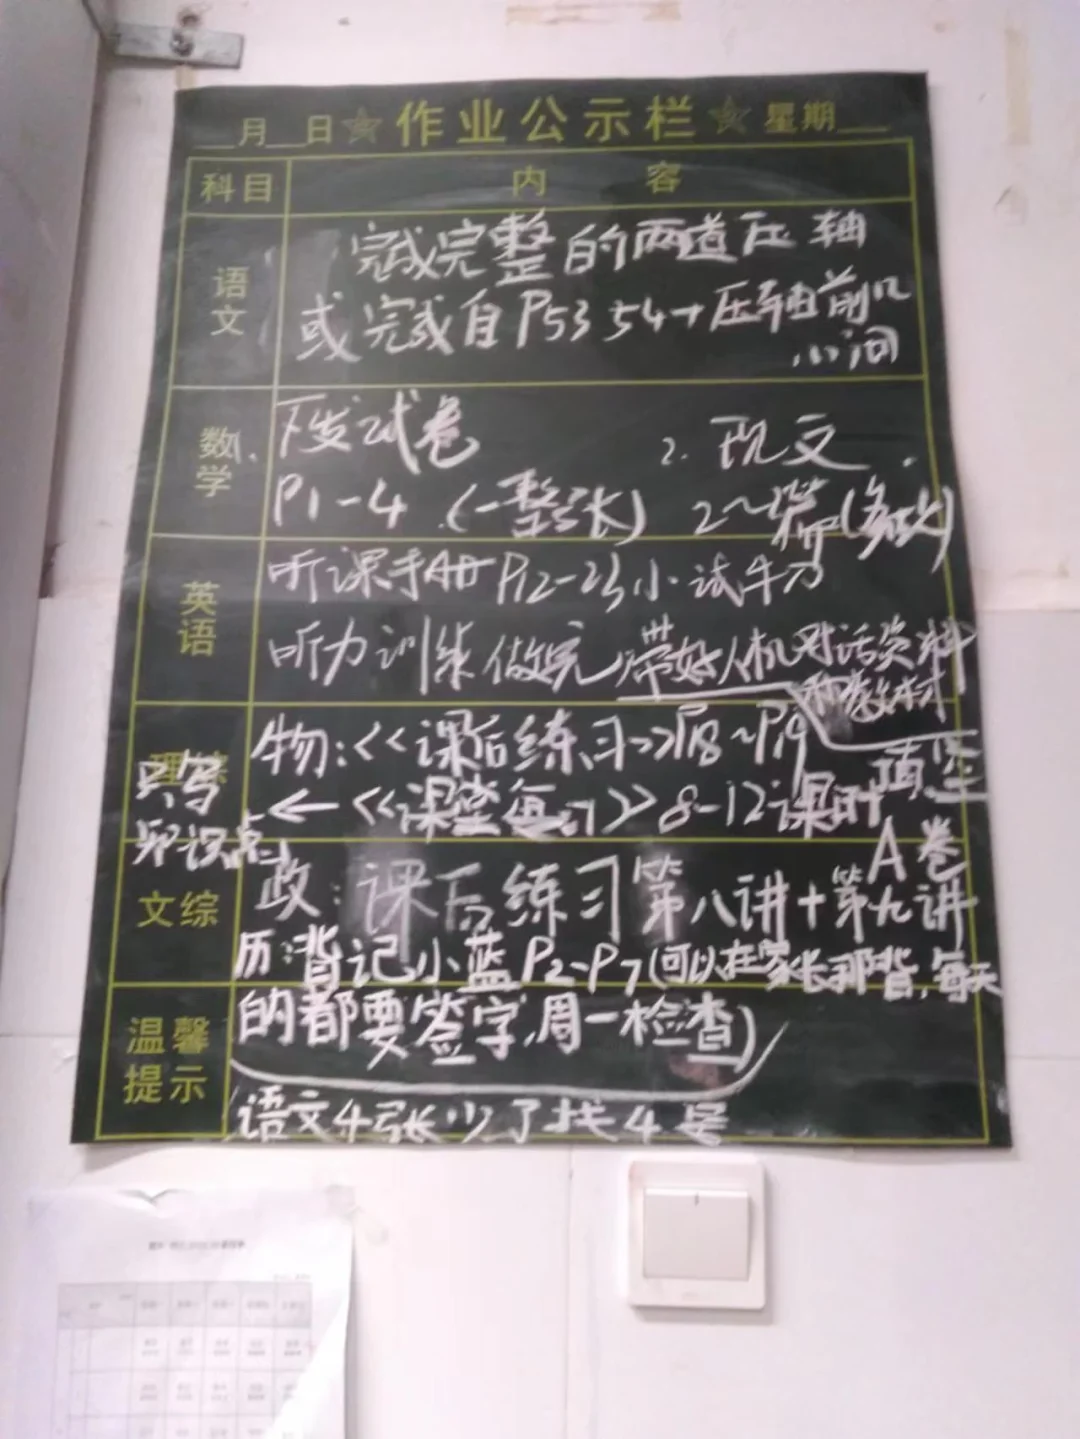 月 日 作业公示栏 星期
科目 内 容
语文
完成完整的两道压轴
或完成自P53 54+压轴前几
小问
数学
1. 下发试卷 2. 现文
P1-4 (一整张) 2~3篇
英语
听课手册P12-23小试牛刀
听力训练做完 带好人机对话资料
和教材
理综
物:<<课后练习>>P18~P19 填空
只写知识点 ← <<课堂每习>> 8-12课时
A卷
文综
政:课后练习第八讲+第九讲
历:背记小蓝P2-P7(可以在家长那背,每天
的都要签字,周一检查)
温馨提示
语文4张少了找4号